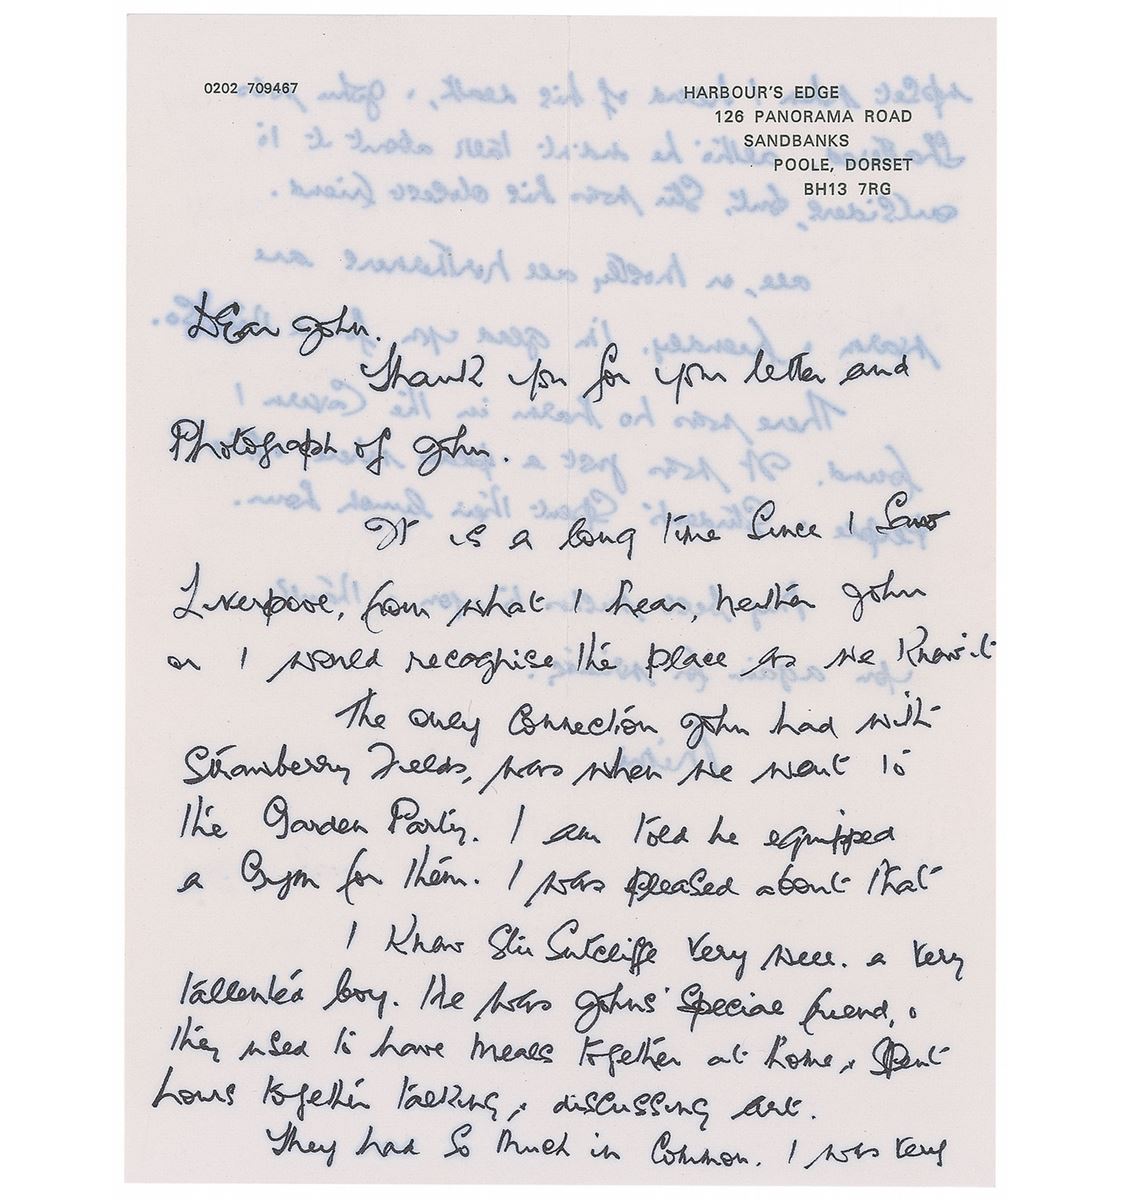 0202 709467
HARBOUR'S EDGE
126 PANORAMA ROAD
SANDBANKS
POOLE, DORSET
BH13 7RG
Dear John.
Thank you for your letter and
Photograph of John.
It is a long time since I saw
Liverpool, from what I hear, neither John
or I would recognise the place as we knew it
The only connection John had with
Strawberry Fields, was when we went to
the Garden Party. I am told he equipped
a Gym for them. I was pleased about that
I knew Stu Sutcliffe very well. a very
tallented boy. He was Johns' special friend, &
they used to have meals together at home, & spent
hours together talking, & discussing art.
They had so much in common. I was very